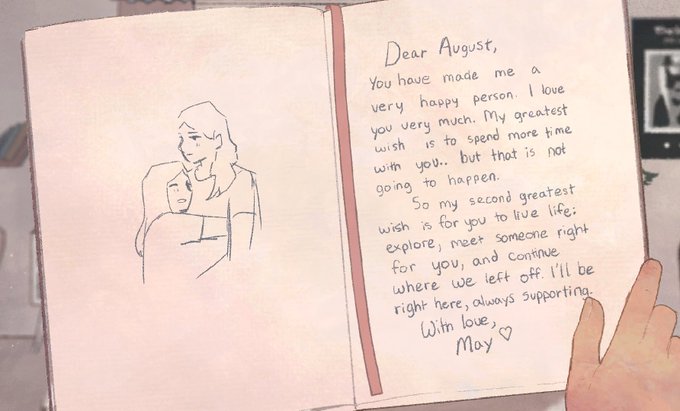 Dear August,
You have made me a
very happy person. I love
you very much. My greatest
wish is to spend more time
with you.. but that is not
going to happen.
So my second greatest
wish is for you to live life:
explore, meet someone right
for you, and continue
where we left off. I'll be
right here, always supporting.
With love,
May ♡